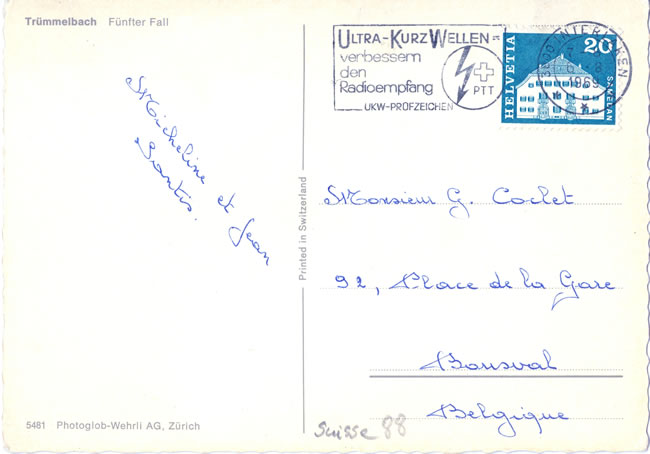 Trümmelbach Fünfter Fall
Micheline et Jean
Santis.
5481 Photoglob-Wehrli AG, Zürich
Printed in Switzerland
ULTRA-KURZWELLEN
verbessern
den
Radioempfang
UKW-PRÜFZEICHEN
PTT
HELVETIA
20
SAMEDAN
3800 INTERLAKEN
1969
Monsieur G. Coclet
92, Place de la Gare
Bousval
Belgique
Suisse 88